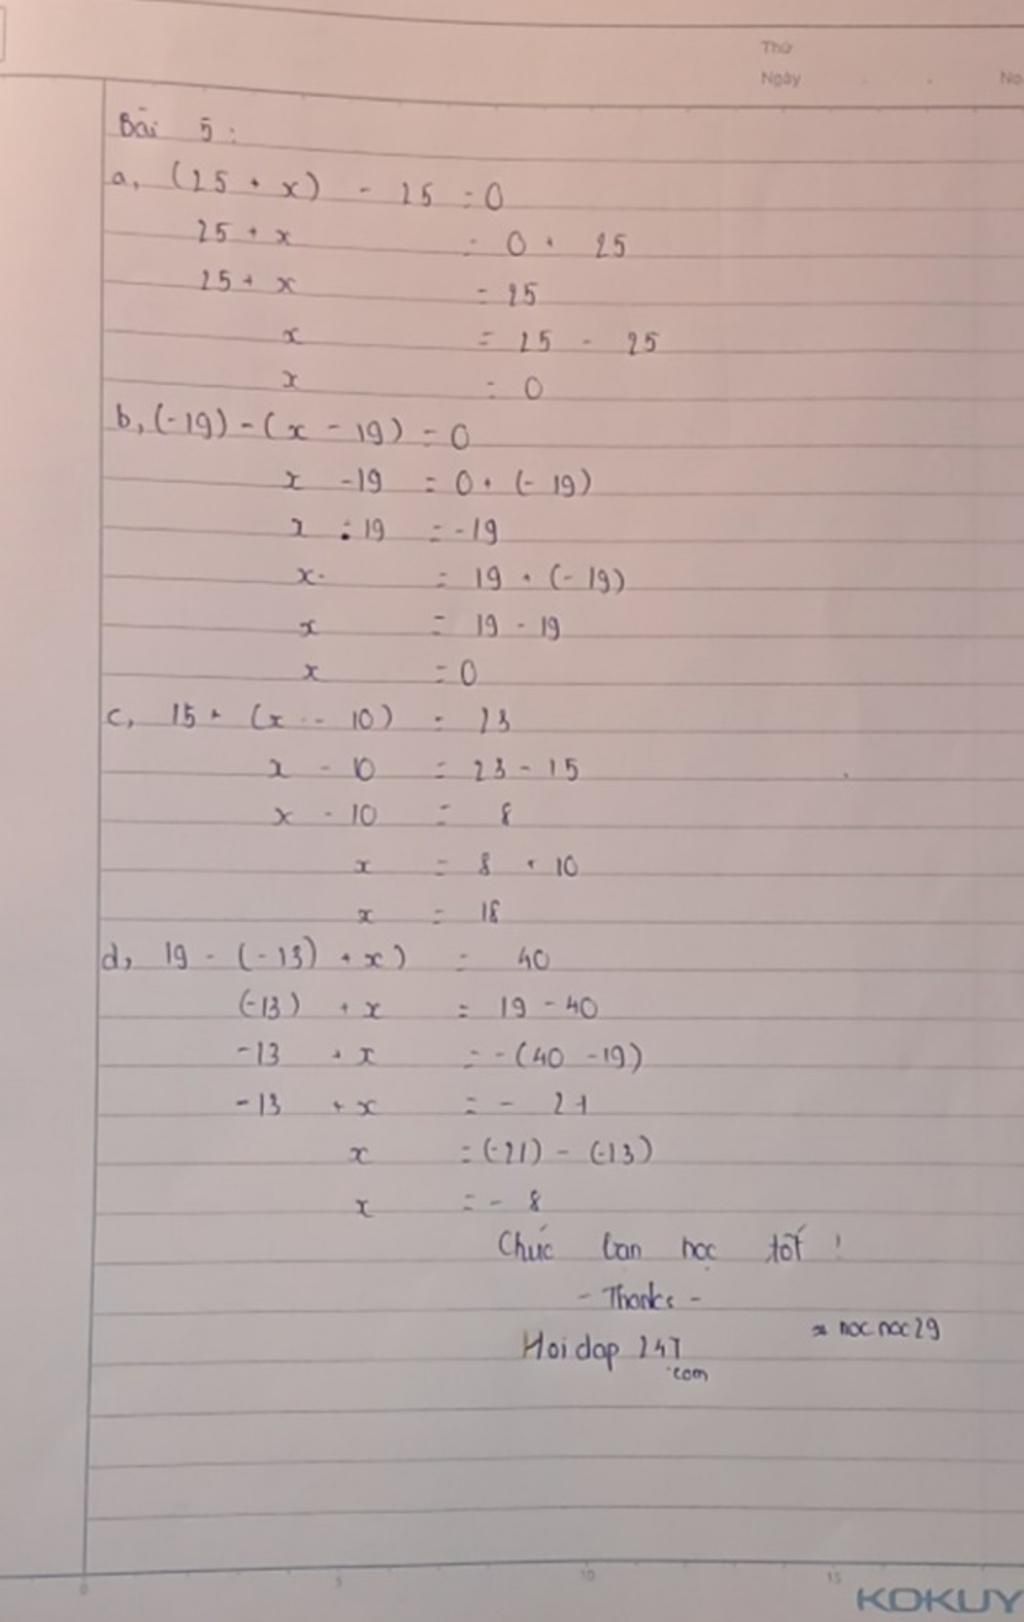 Thứ
Ngày . . No
Bài 5 :
a, (25 + x) - 25 = 0
25 + x = 0 + 25
25 + x = 25
x = 25 - 25
x = 0
b, (-19) - (x - 19) = 0
x - 19 = 0 + (-19)
x - 19 = -19
x = 19 + (-19)
x = 19 - 19
x = 0
c, 15 + (x - 10) = 23
x - 10 = 23 - 15
x - 10 = 8
x = 8 + 10
x = 18
d, 19 - (-13) + x) = 40
(-13) + x = 19 - 40
-13 + x = -(40 - 19)
-13 + x = - 21
x = (-21) - (-13)
x = - 8
Chúc bạn học tốt !
- Thanks -
nocnoc29
Hoidap 247
.com
0 5 10 15
KOKUY